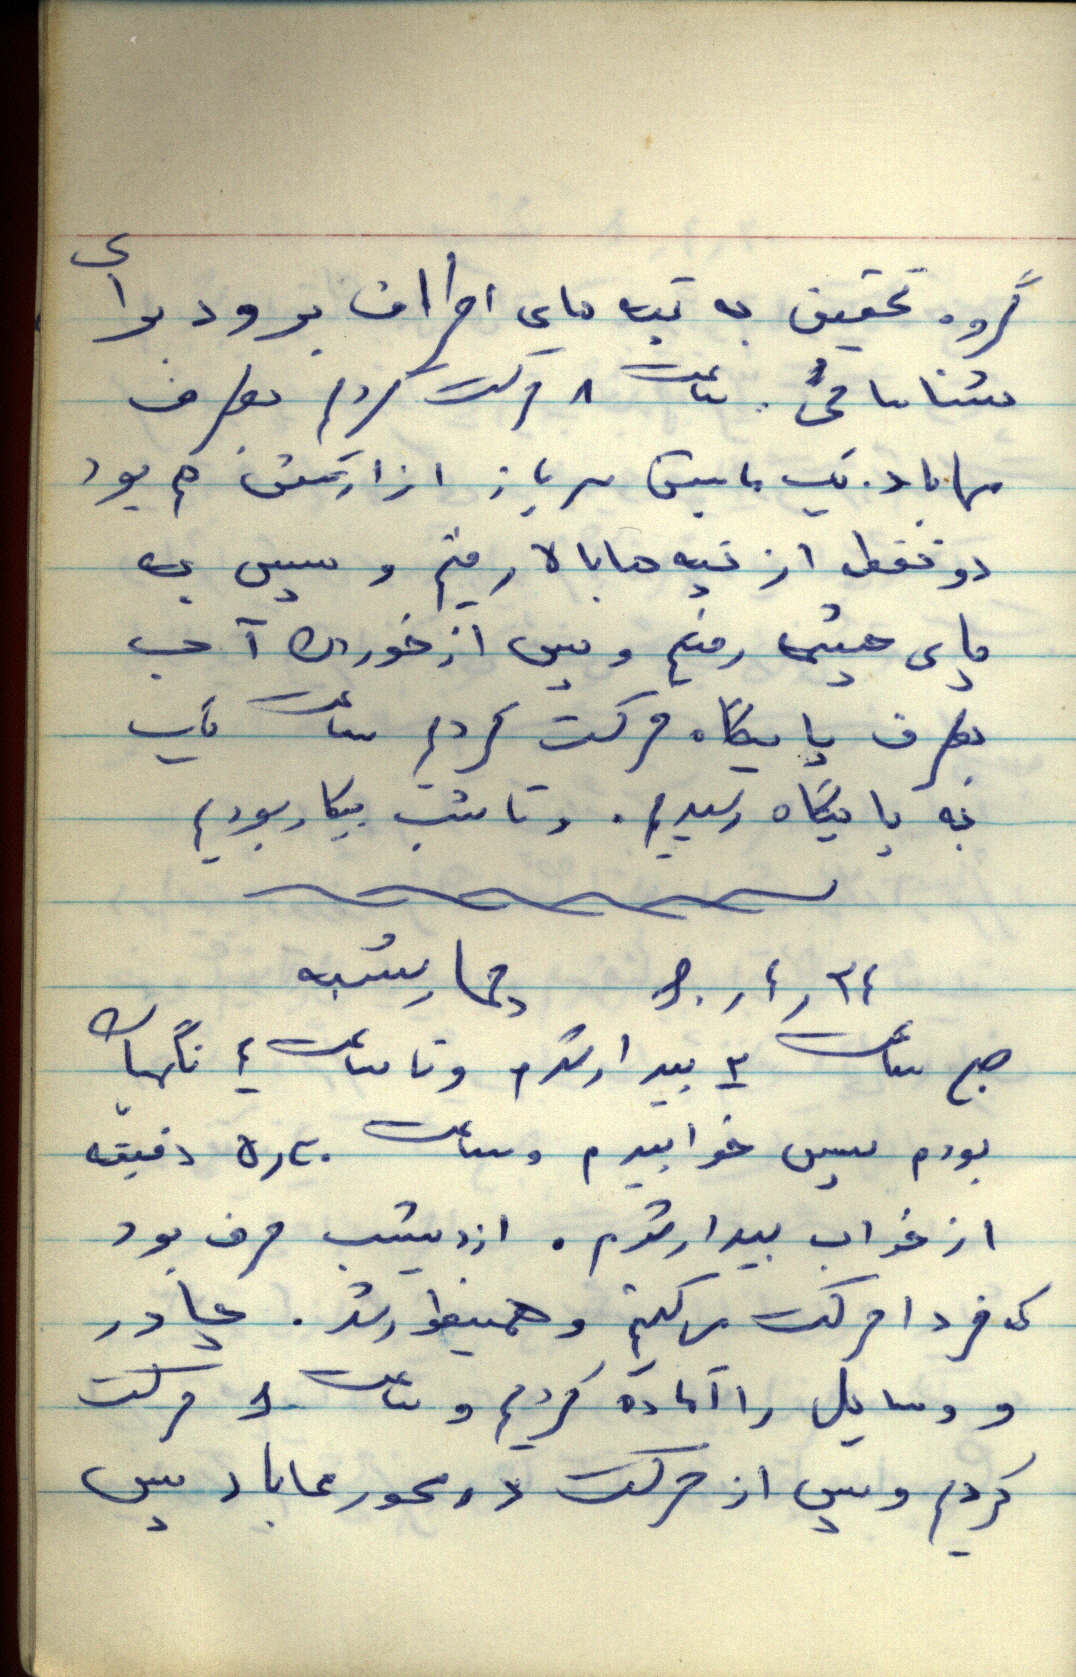 گروه تحقیق به تپه های اطراف برود برای
شناسائی. ساعت ۸ حرکت کردیم بطرف
مهاباد. یک ماشین سرباز از ارتش هم بود
دو نقطه از تپه ها بالا رفتیم و سپس به
پای چشمه رفتیم و پس از خوردن آب
بطرف پایگاه حرکت کردیم ساعت یک
به پایگاه رسیدیم. و تا شب بیکار بودیم
۲۴ر۴ر۶۰ چهارشنبه
صبح ساعت ۳ بیدار شدم و تا ساعت ۴ نگهبان
بودم سپس خوابیدم و ساعت ۵ر۳۰ دقیقه
از خواب بیدار شدم. از دیشب حرف بود
که فردا حرکت میکنیم و همینطور شد. چادر
و وسایل را آماده کردیم و ساعت ۸ حرکت
کردیم و پس از حرکت در محور مهاباد پس